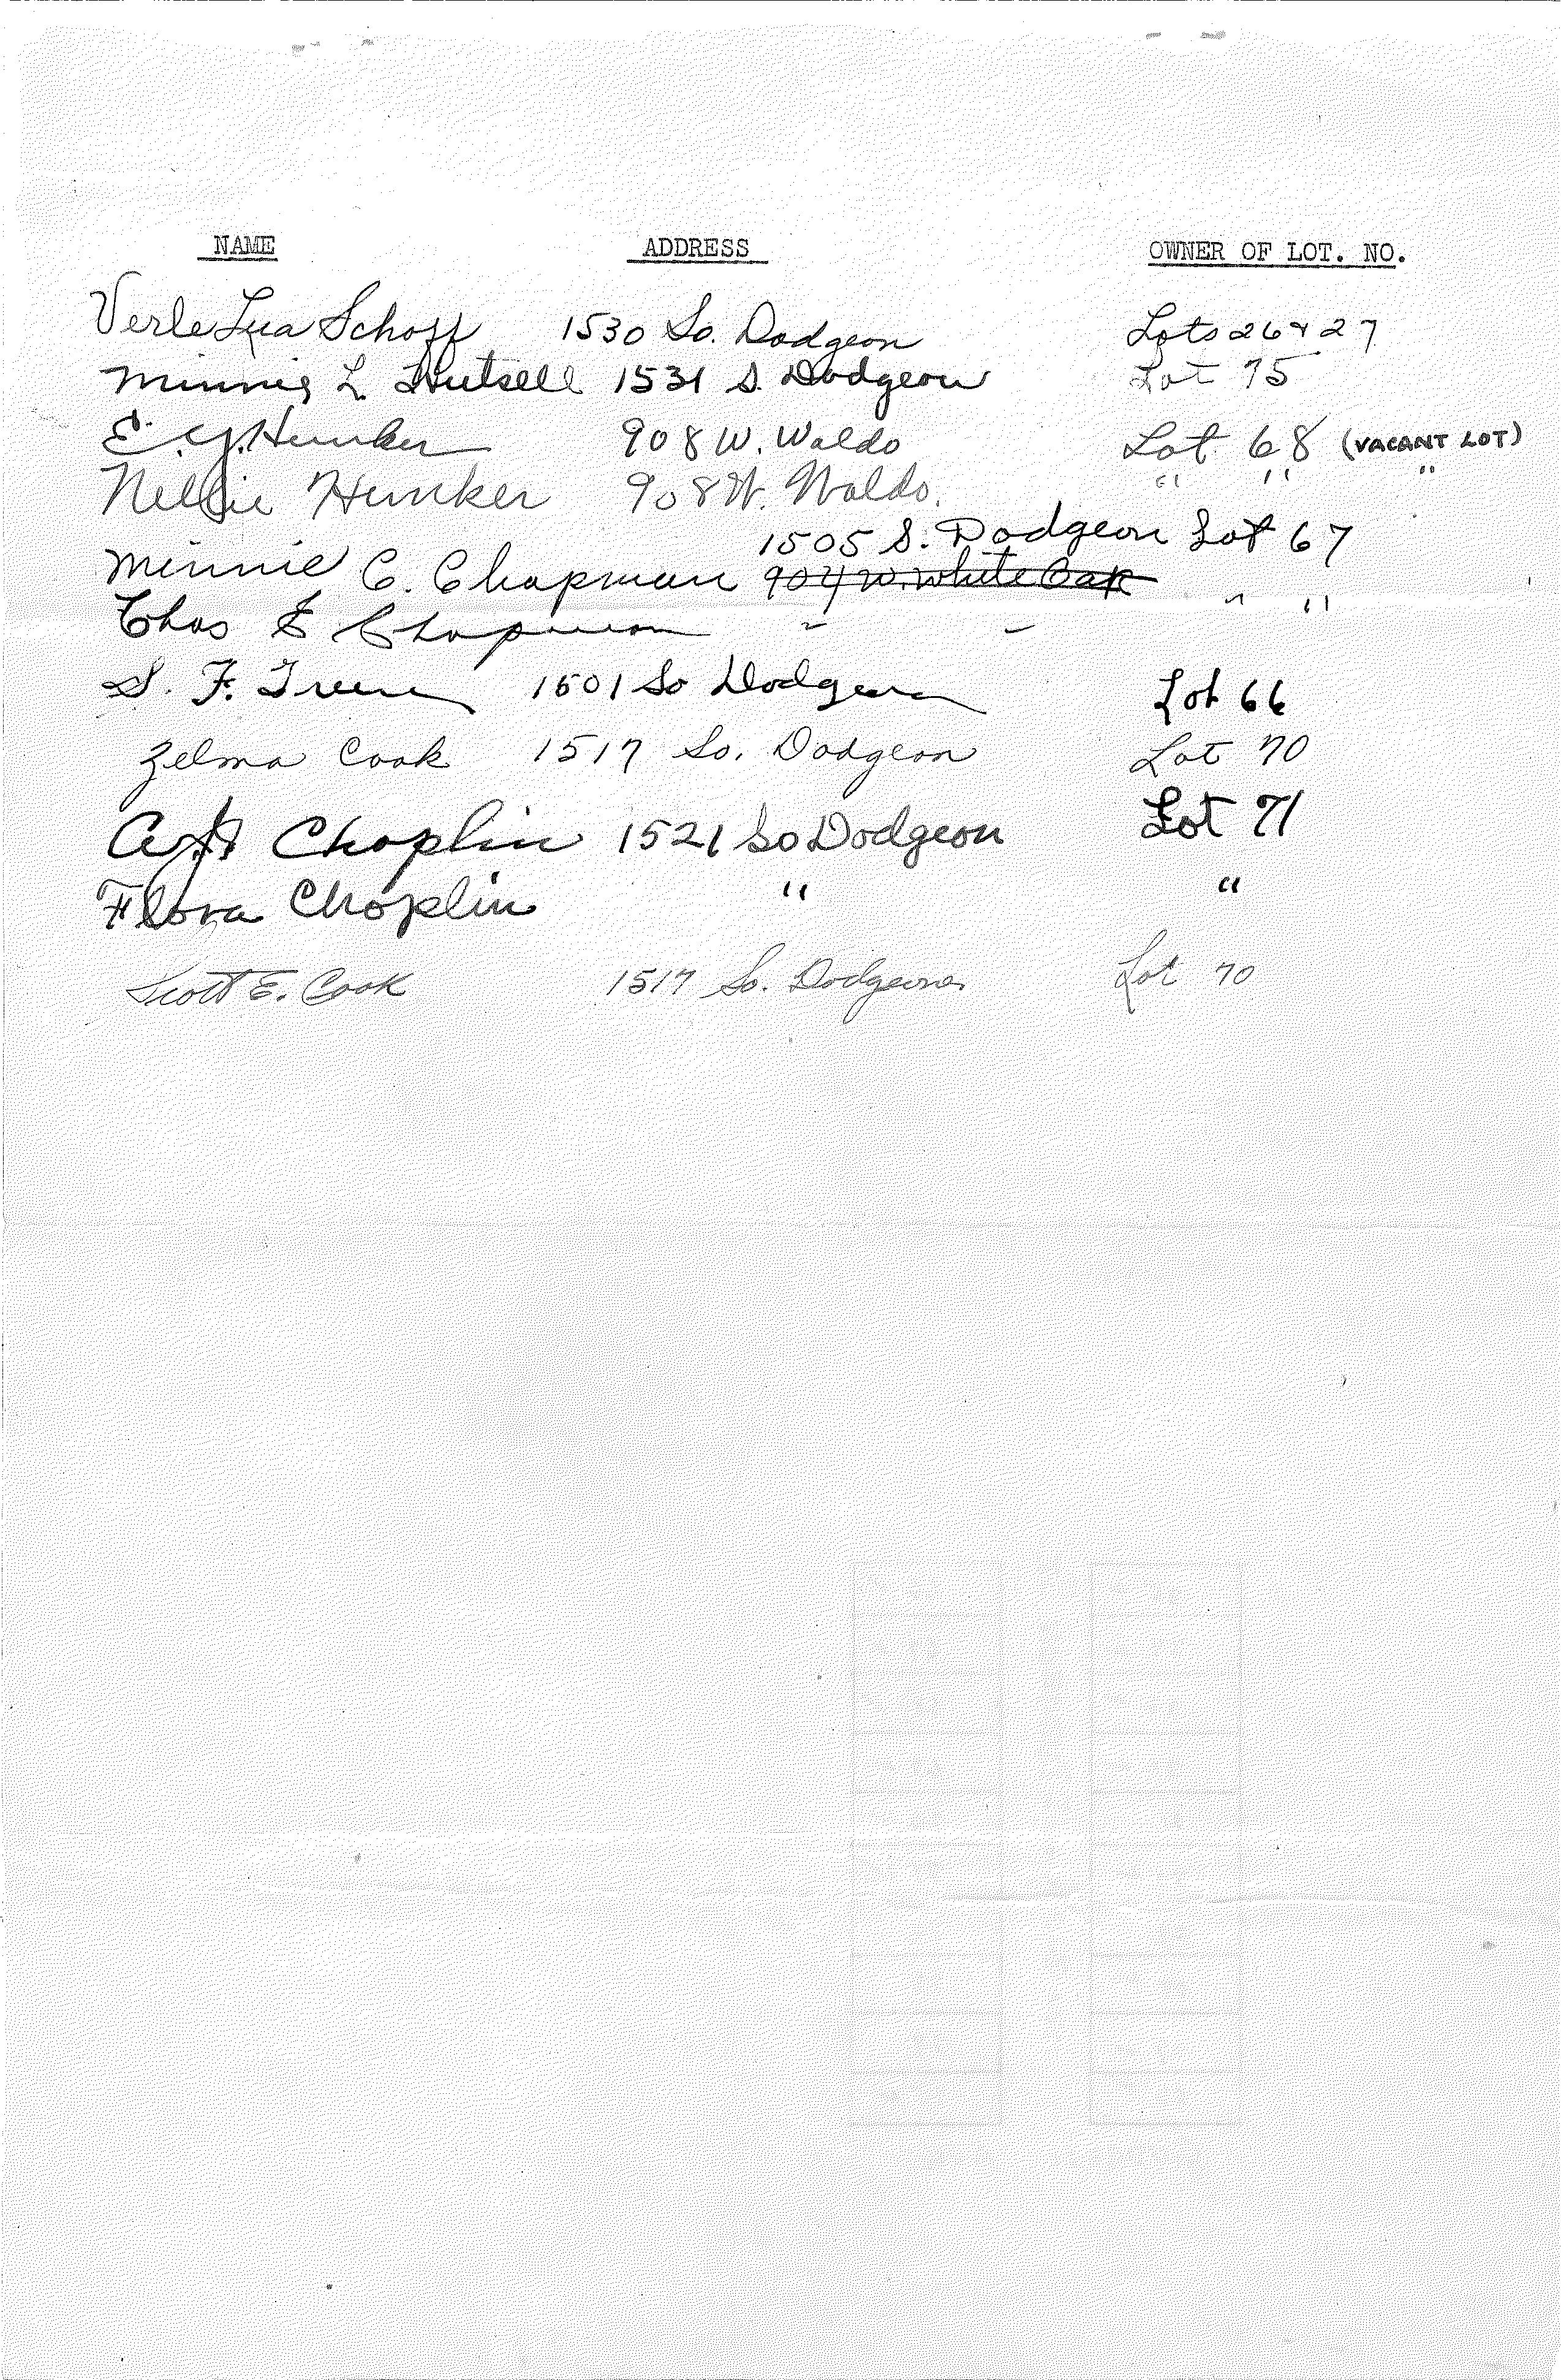 NAME ADDRESS OWNER OF LOT. NO.
Verle Lea Schoff 1530 So. Dodgeon Lots 26 & 27
Minnie L. Hutsell 1531 S. Dodgeon Lot 75
E. J. Hunker 908 W. Waldo Lot 68 (VACANT LOT)
Nellie Hunker 908 W. Waldo. " " "
1505 S. Dodgeon Lot 67
Minnie C. Chapman 904 W. White Oak
Chas E Chapman " " " "
S. F. Green 1501 So Dodgeon Lot 66
Zelma Cook 1517 So. Dodgeon Lot 70
Choplin 1521 So Dodgeon Lot 71
Flora Choplin " "
Scott E. Cook 1517 So. Dodgeon Lot 70